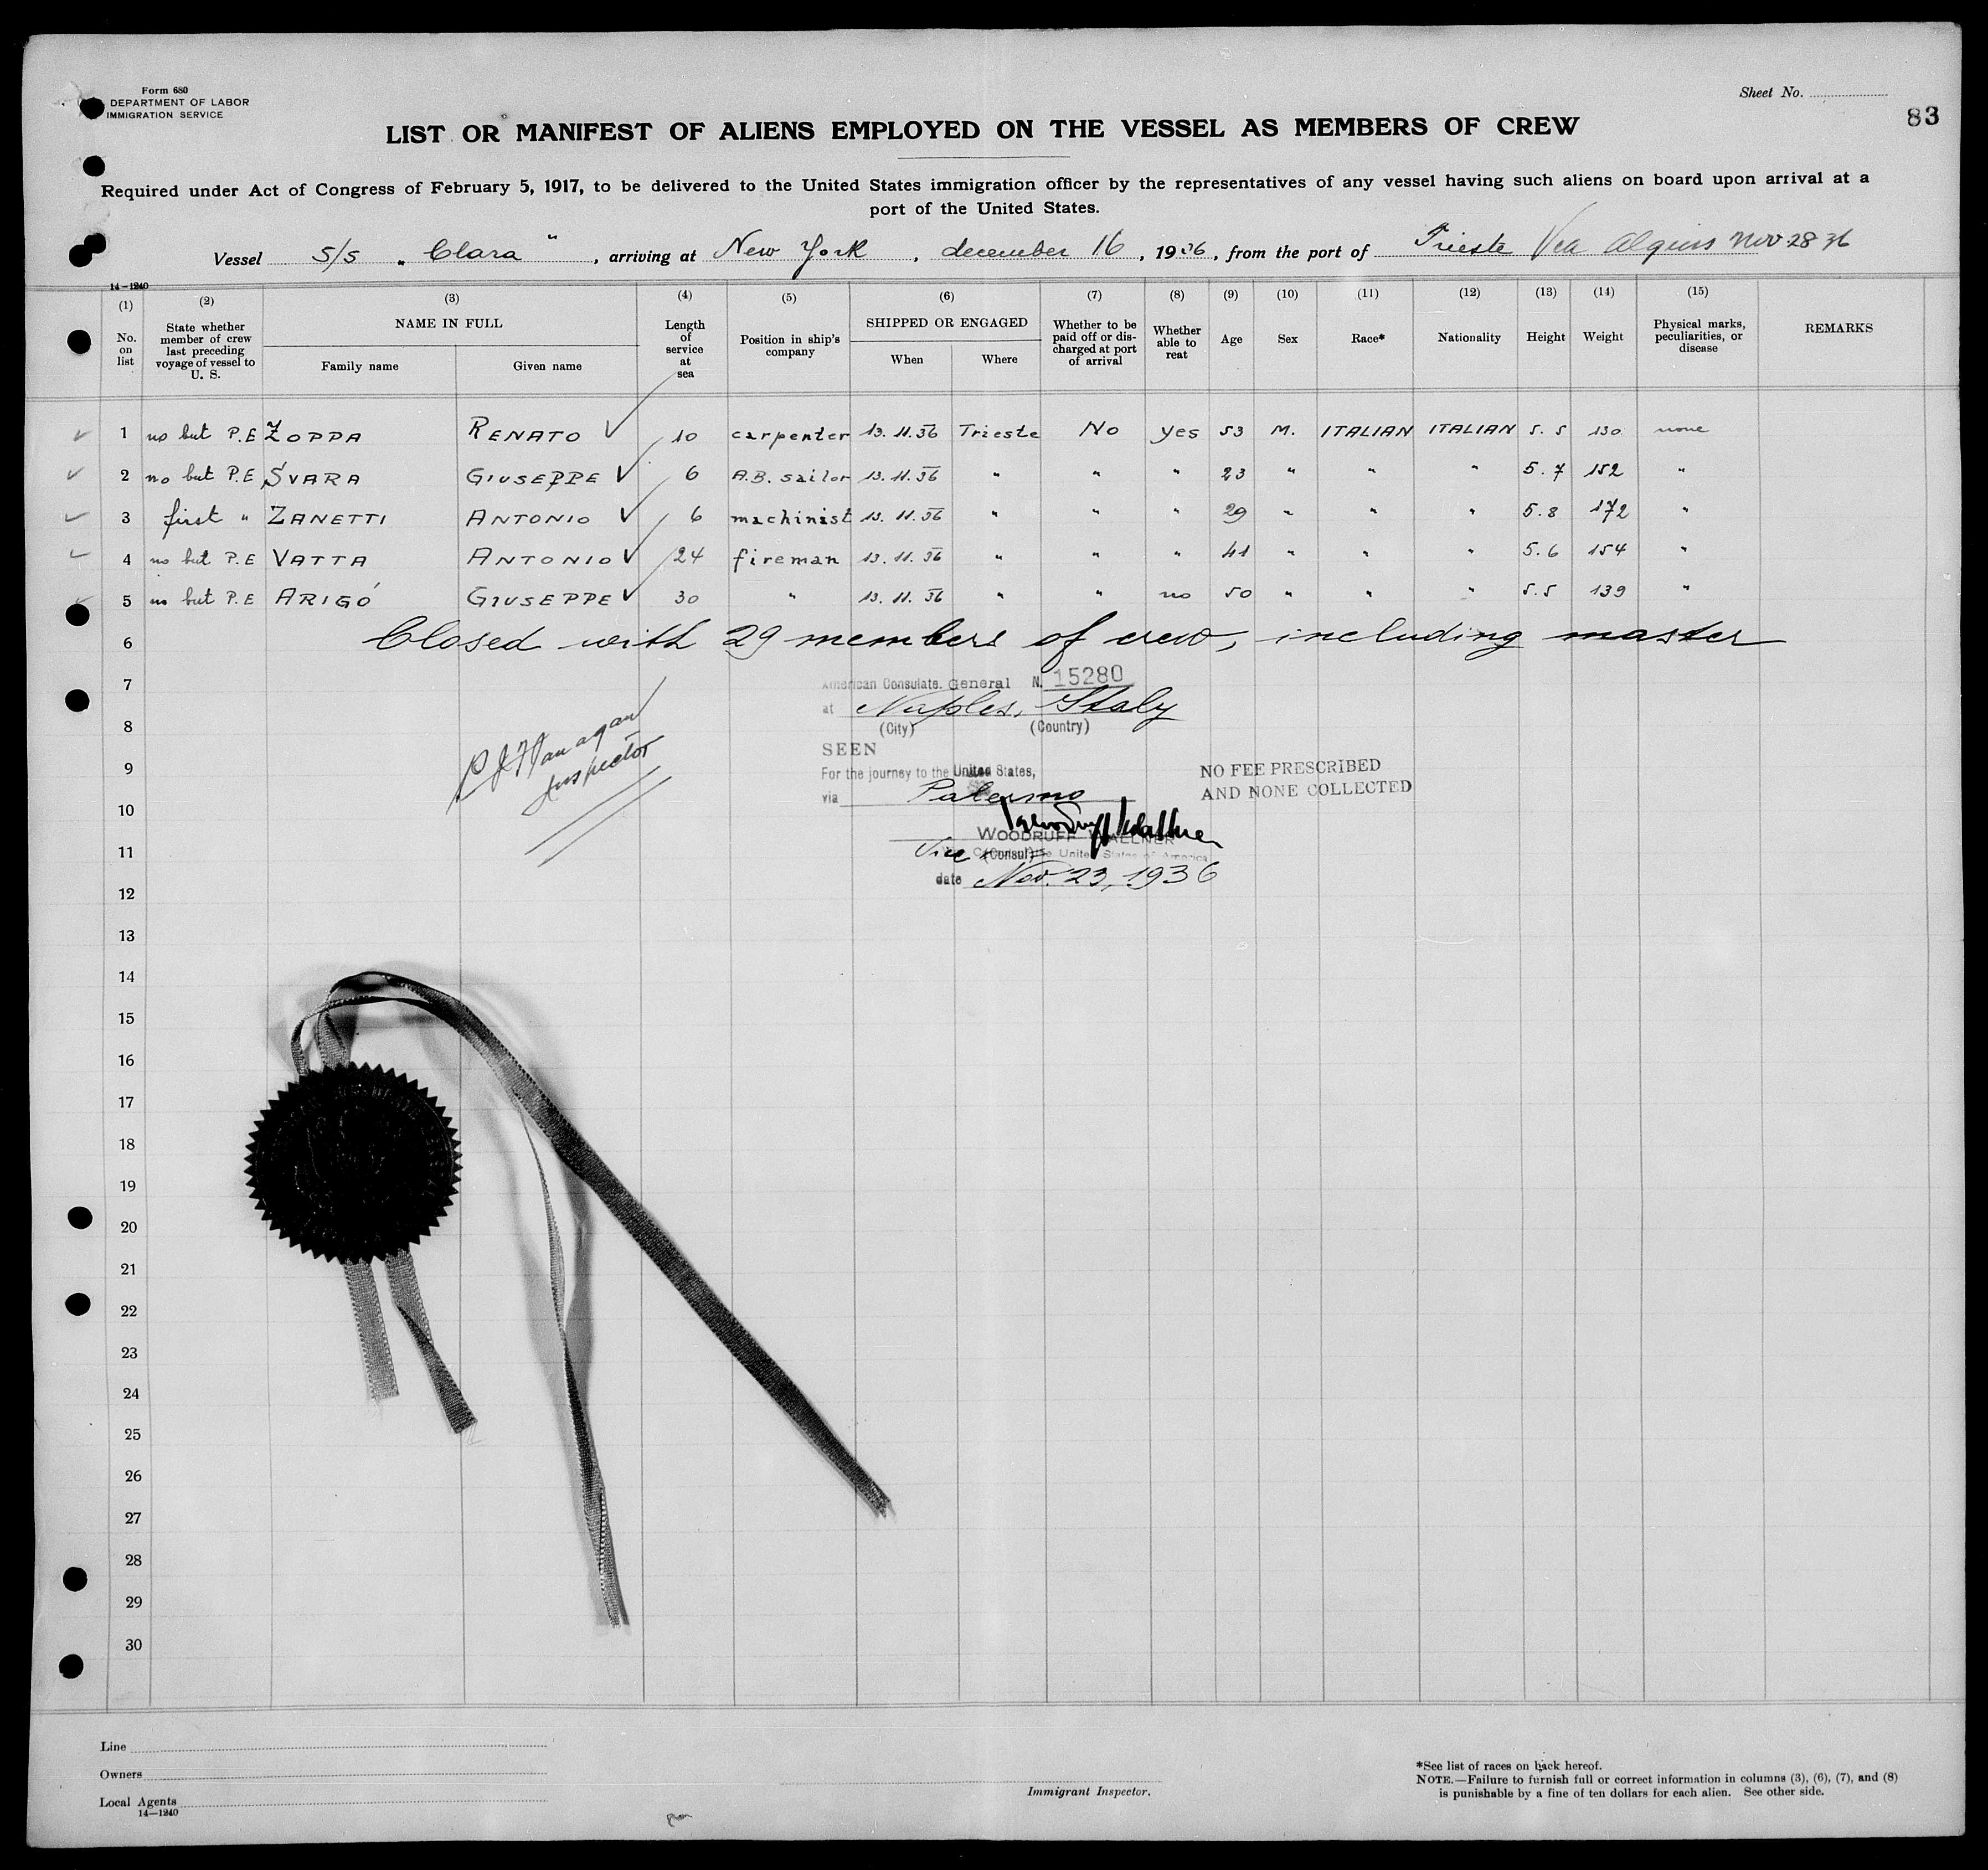 Form 680
DEPARTMENT OF LABOR
IMMIGRATION SERVICE
Sheet No.
83
LIST OR MANIFEST OF ALIENS EMPLOYED ON THE VESSEL AS MEMBERS OF CREW
Required under Act of Congress of February 5, 1917, to be delivered to the United States immigration officer by the representatives of any vessel having such aliens on board upon arrival at a
port of the United States.
Vessel S/S „ Clara ", arriving at New York, december 16, 1936, from the port of Trieste Via Algiers Nov 28 36
14-1240
(1) (2) (3) (4) (5) (6) (7) (8) (9) (10) (11) (12) (13) (14) (15)
No. on list
State whether member of crew last preceding voyage of vessel to U. S.
NAME IN FULL
Family name
Given name
Length of service at sea
Position in ship's company
SHIPPED OR ENGAGED
When
Where
Whether to be paid off or discharged at port of arrival
Whether able to reat
Age
Sex
Race*
Nationality
Height
Weight
Physical marks, peculiarities, or disease
REMARKS
1 no but P.E ZOPPA RENATO 10 carpenter 13.11.36 Trieste No yes 53 M. ITALIAN ITALIAN 5.5 130 none
2 no but P.E SVARA GIUSEPPE 6 A.B. sailor 13.11.36 " " " 23 " " " 5.7 152 "
3 first " ZANETTI ANTONIO 6 machinist 13.11.36 " " " 29 " " " 5.8 172 "
4 no but P.E VATTA ANTONIO 24 fireman 13.11.36 " " " 41 " " " 5.6 154 "
5 no but P.E ARIGÓ GIUSEPPE 30 " 13.11.36 " " no 50 " " " 5.5 139 "
6 Closed with 29 members of crew, including master
7
American Consulate. General N. 15280
at Naples, Italy
8
(City) (Country)
P J Flanagan
Inspector
SEEN
9
For the journey to the United States,
NO FEE PRESCRIBED
AND NONE COLLECTED
via Palermo
10
WOODRUFF WALLNER
11
Vice (Consul) United States of America
date Nov. 23, 1936
12
13
14
15
16
17
18
19
20
21
22
23
24
25
26
27
28
29
30
Line
Owners
Local Agents
14-1240
Immigrant Inspector.
*See list of races on back hereof.
NOTE.—Failure to furnish full or correct information in columns (3), (6), (7), and (8)
is punishable by a fine of ten dollars for each alien. See other side.